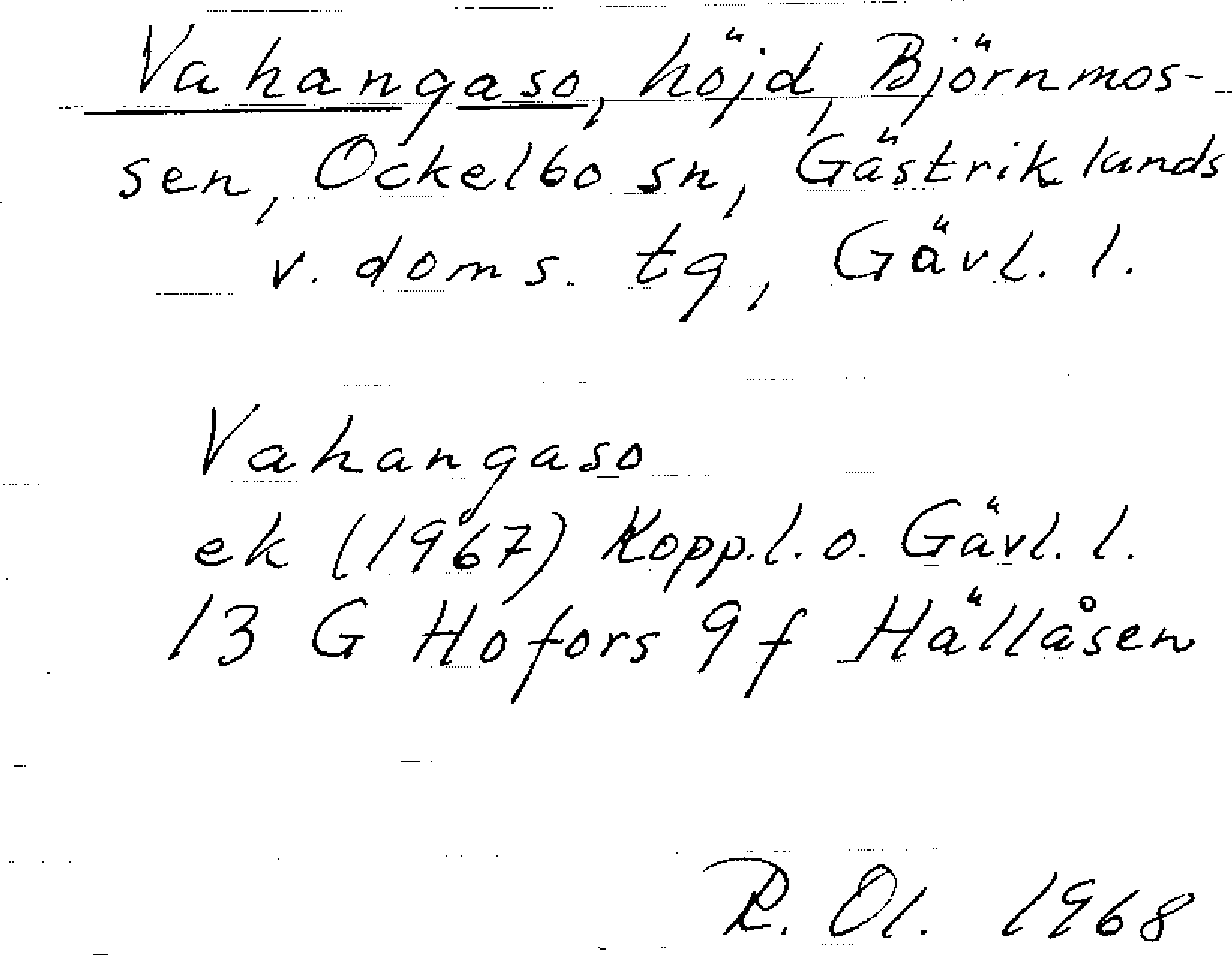 Vahangaso, höjd, Björnmos-
sen, Ockelbo sn, Gästriklands
v. doms. tg, Gävl. l.
Vahangaso
ek (1967) Kopp.l. o. Gävl. l.
13 G Hofors 9 f Hällåsen
R. Ol. 1968